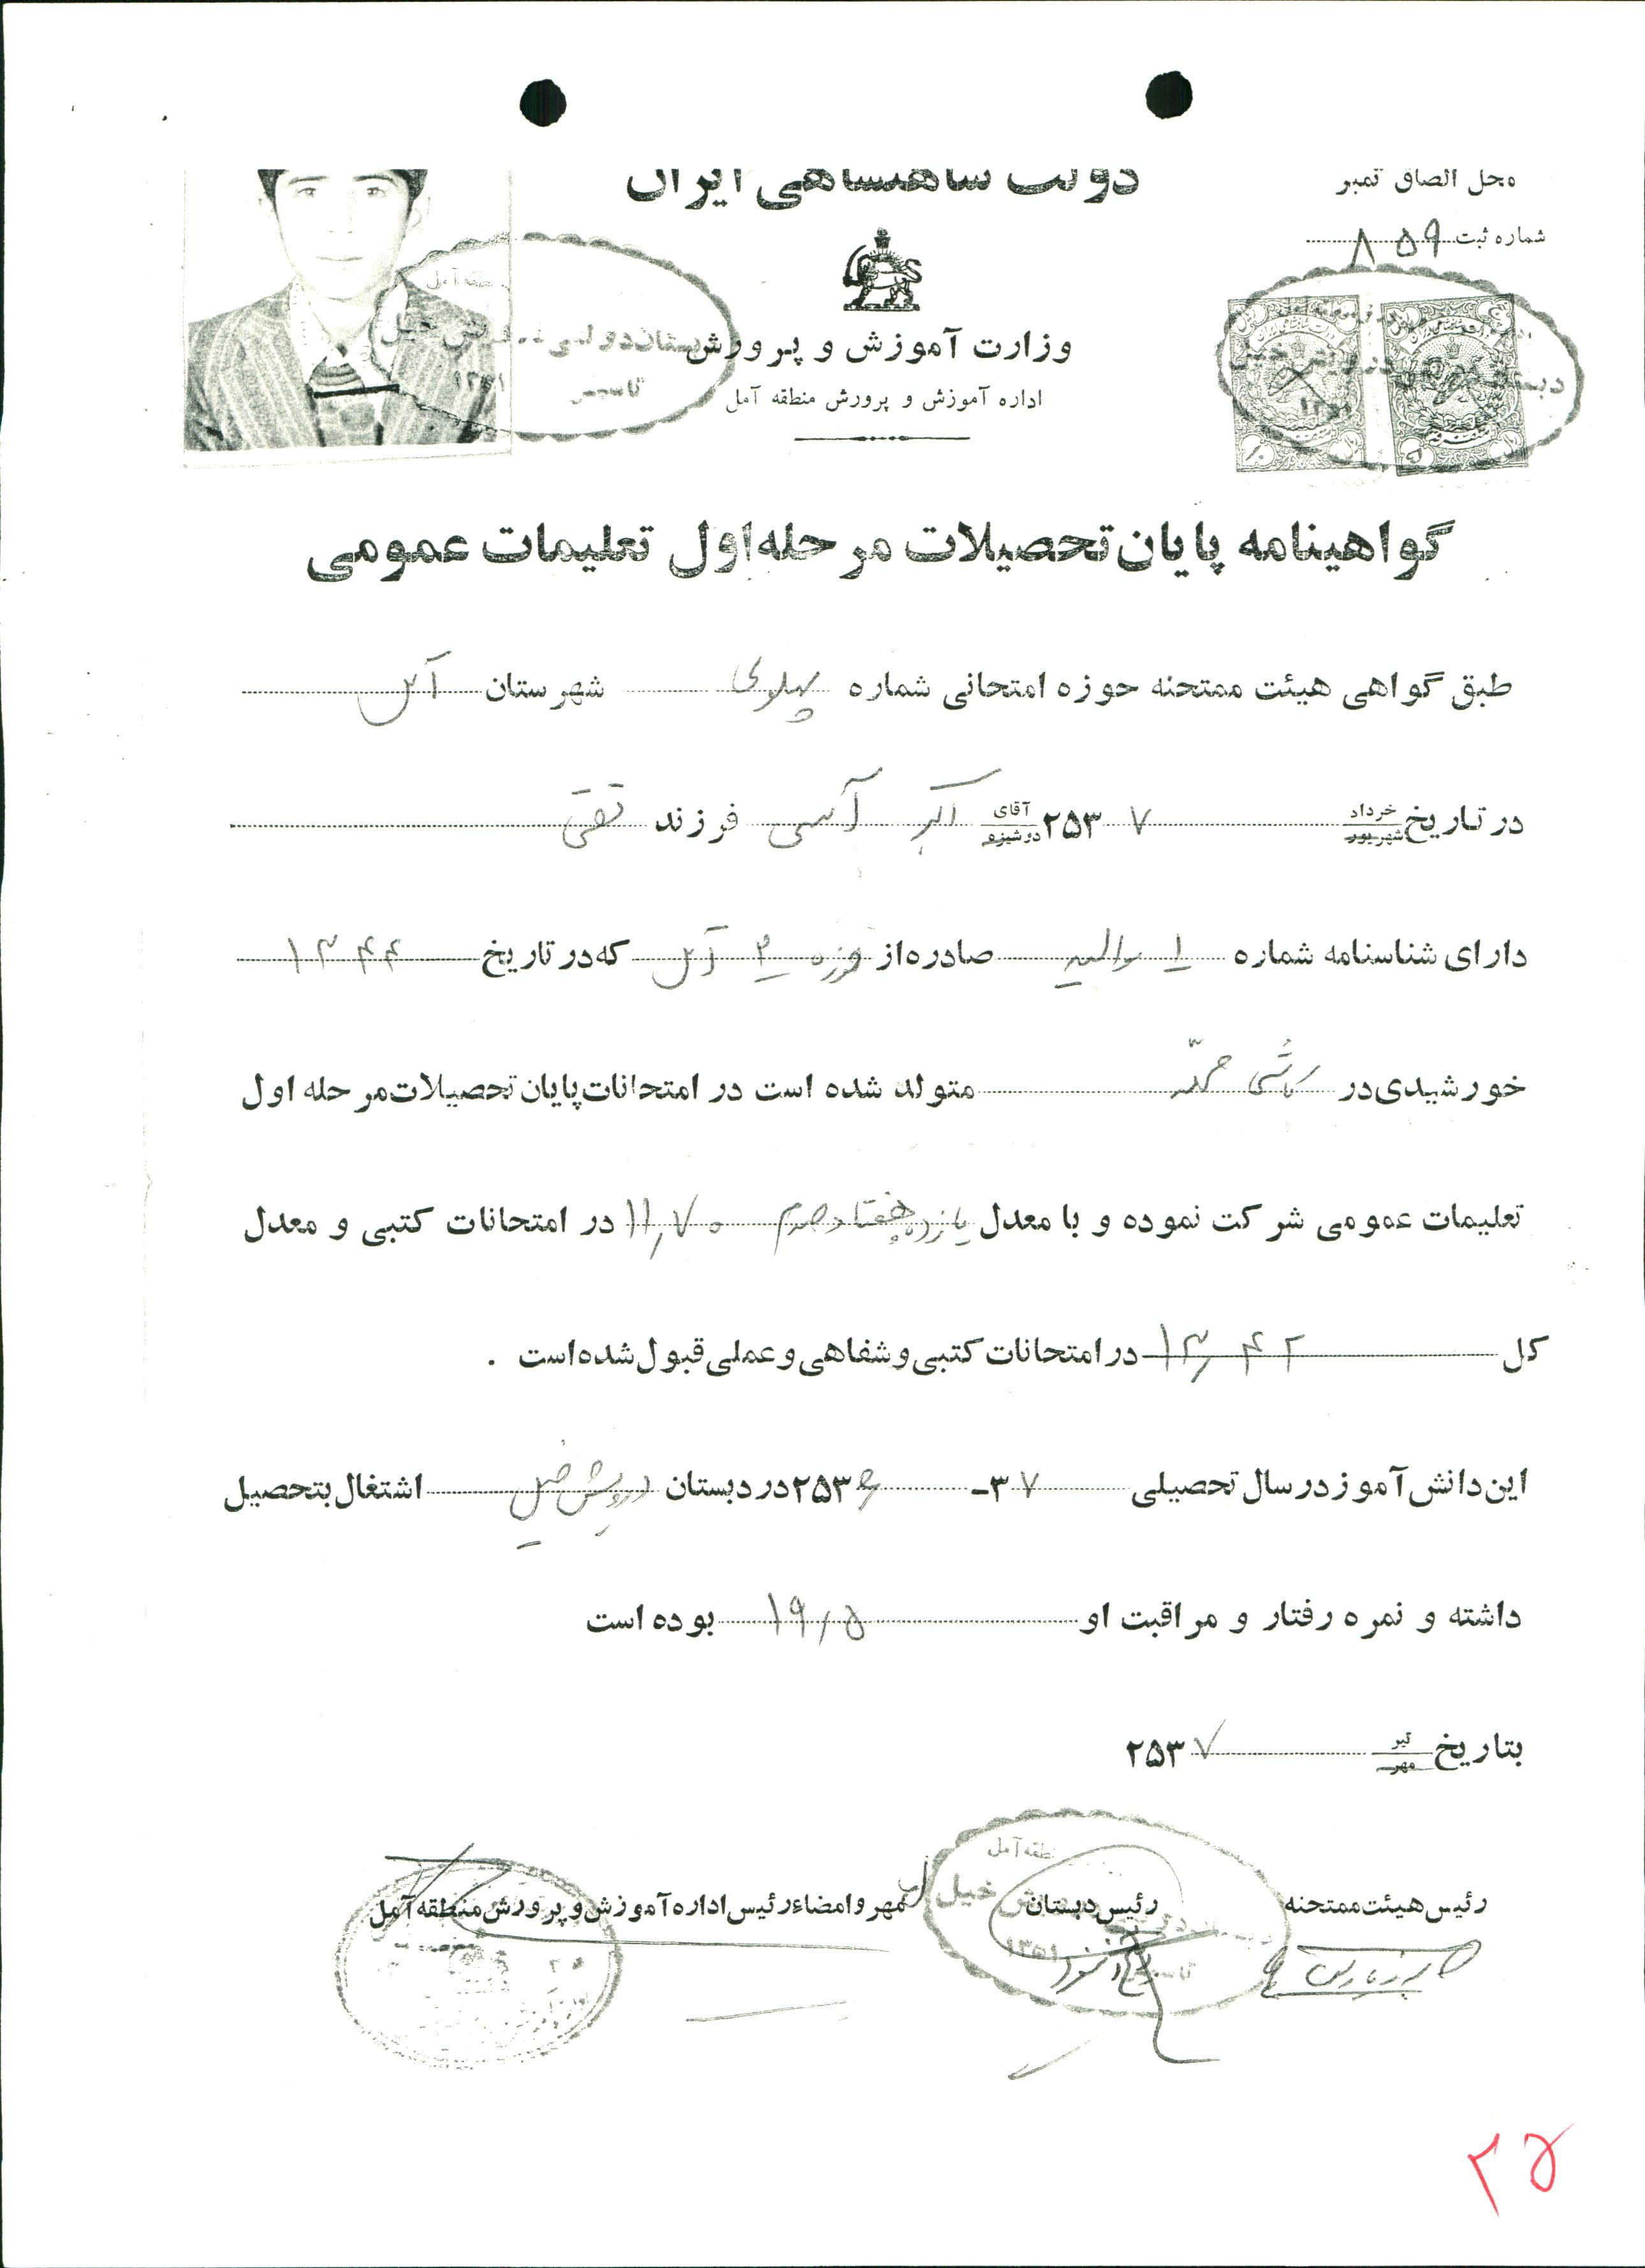 محل الصاق تمبر
دولت شاهنشاهی ایران
شماره ثبت ۸۵۹
وزارت آموزش و پرورش
اداره آموزش و پرورش منطقه آمل
گواهینامه پایان تحصیلات مرحله اول تعلیمات عمومی
طبق گواهی هیئت ممتحنه حوزه امتحانی شماره پهلوی شهرستان آمل
در تاریخ خرداد شهریور ۲۵۳۷ آقای دوشیزه اکبر آسی فرزند تقی
دارای شناسنامه شماره ۱ صادره از حوزه ۳ آمل که در تاریخ ۱۳۴۴
خورشیدی در متولد شده است در امتحانات پایان تحصیلات مرحله اول
تعلیمات عمومی شرکت نموده و با معدل یازده هفتاد صدم ۱۱,۷۰ در امتحانات کتبی و معدل
کل ۱۳,۴۲ در امتحانات کتبی و شفاهی و عملی قبول شده است .
این دانش آموز در سال تحصیلی ۳۷-۲۵۳۶ در دبستان درویش خیل اشتغال بتحصیل
داشته و نمره رفتار و مراقبت او ۱۹,۵ بوده است
بتاریخ تیر مهر ۲۵۳۷
رئیس هیئت ممتحنه رئیس دبستان مهر و امضاء رئیس اداره آموزش و پرورش منطقه آمل
۲۵